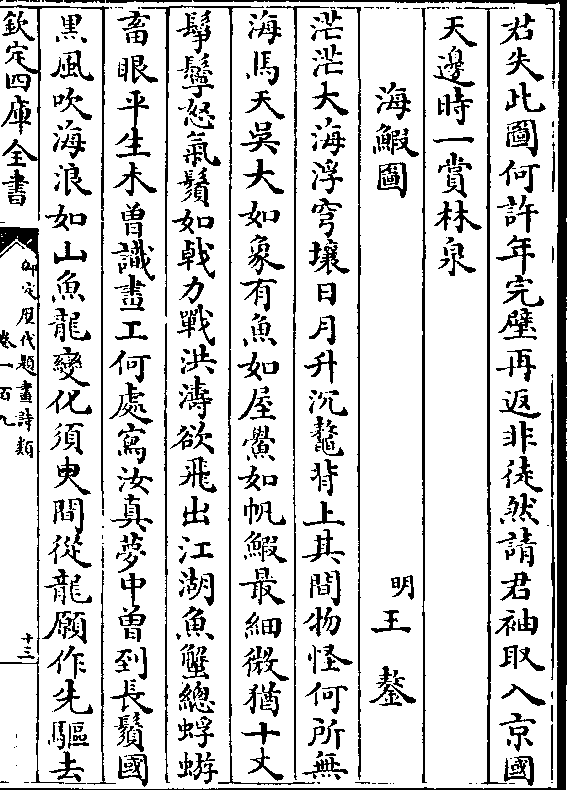 君失此圖何許年完璧再返非徒然請君袖取入京國
天邊時一賞林泉
海鰕圖
明王鏊
茫茫大海浮穹壤日月升沉鼇背上其間物怪何所無
海馬天吳大如象有魚如屋鱟如帆鰕最細微猶十丈
髩鬡怒氣鬚如戟力戰洪濤欲飛出江湖魚蟹總蜉蝣
畜眼平生未曾識畫工何處寫汝真夢中曾到長鬚國
黒風吹海浪如山魚龍變化須臾間從龍願作先驅去
欽定四庫全書
御定歴代題畫詩類
卷一百九
十三